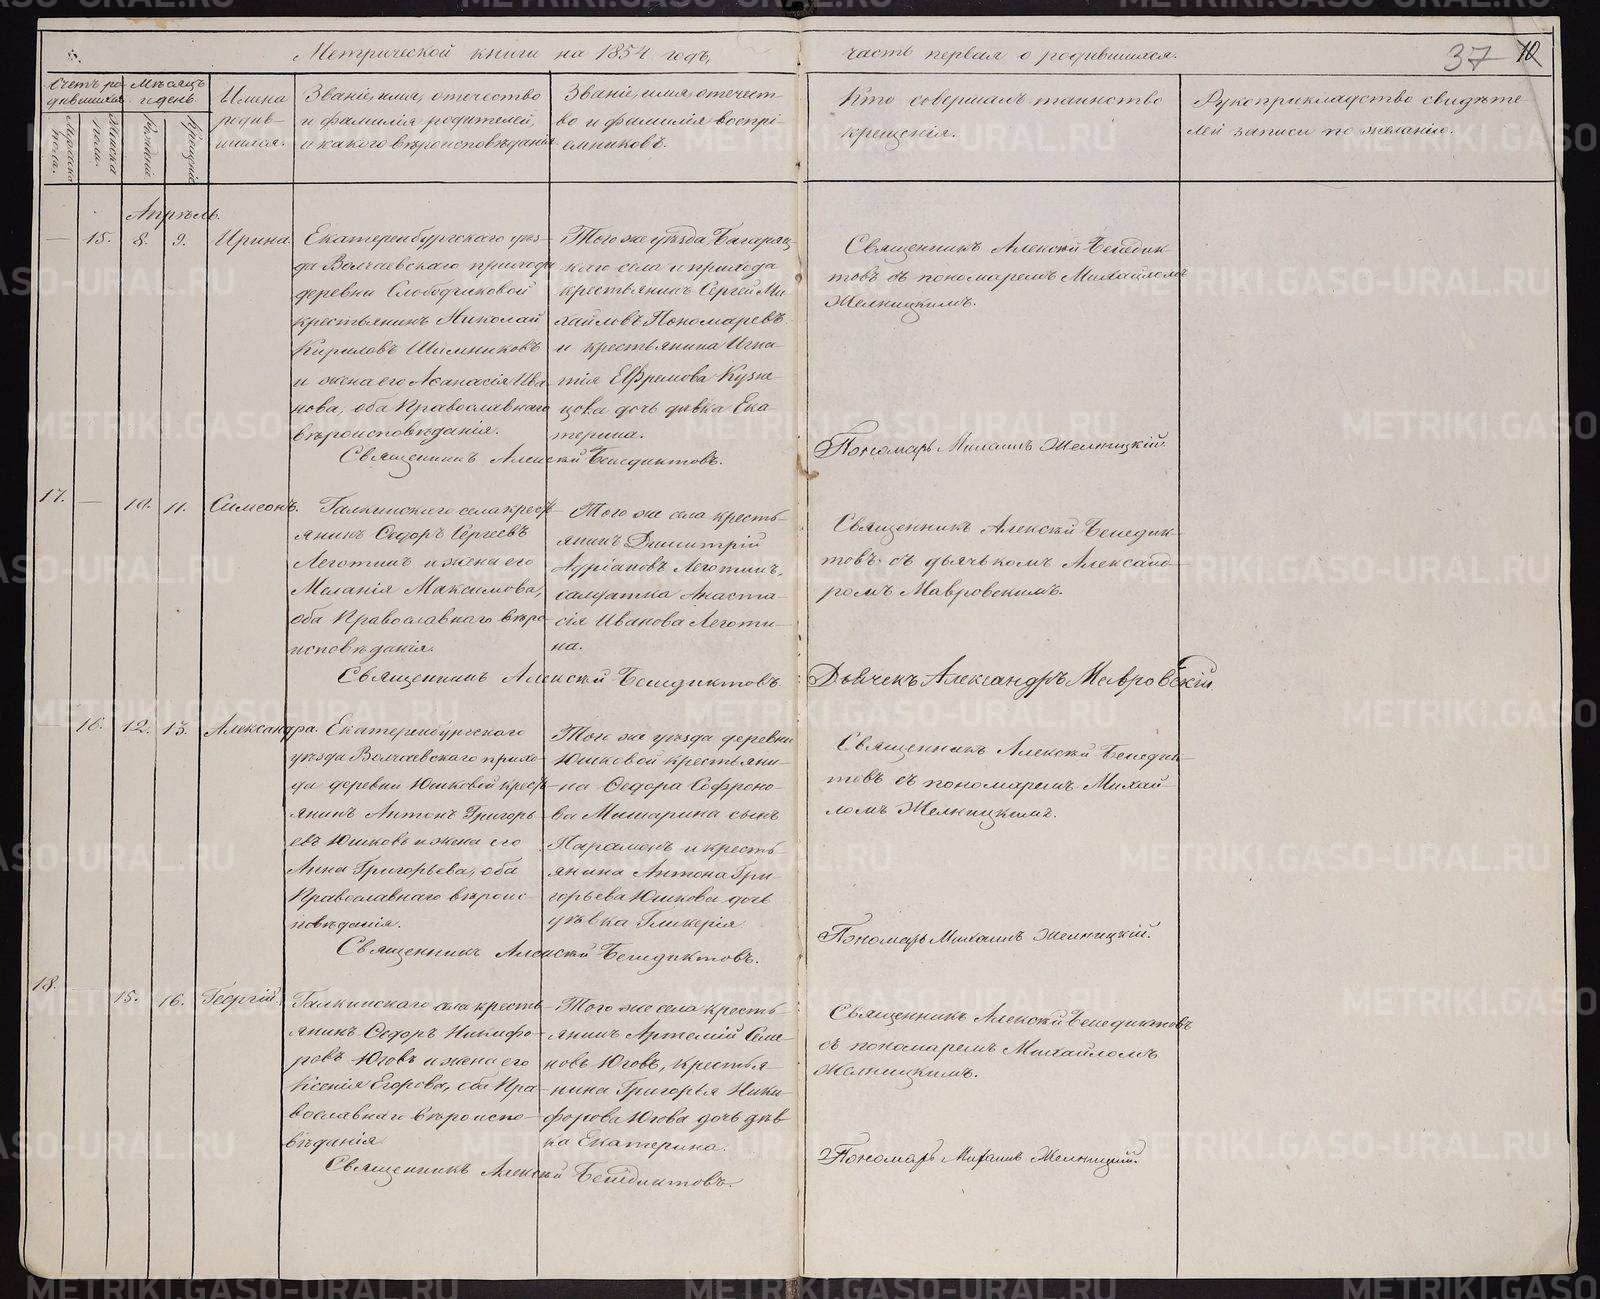 Метрической книги на 1854 годъ,
часть первая о родившихся.
37
10
Счетъ ро-
дившихся.
Мѣсяцъ
и день.
Имена
родив-
шихся.
Званіе, имя, отечество
и фамилія родителей,
и какого вѣроисповѣданія
Званіе, имя, отечест-
во и фамилія воспрі-
емниковъ.
Кто совершалъ таинство
крещенія.
Рукоприкладство свидѣте-
лей записи по желанію.
Мужеска
пола.
Женска
пола.
Рожденія.
Крещенія.
Апрѣль.
— 15. 8. 9. Ирина
Екатеринбургскаго уѣз-
да Волчаевскаго прихода
деревни Слободчиковой
крестьянинъ Николай
Кириловъ Шимниковъ
и жена его Аѳанасія Ива-
нова, оба Православнаго
вѣроисповѣданія.
Того же уѣзда, Багаряц-
каго села и прихода
крестьянинъ Сергей Ми-
хайловъ Пономаревъ
и крестьянина Игна-
тія Ефремова Кузне-
цова дочь дѣвка Ека-
терина.
Священникъ Алексѣй Бенедик-
товъ съ пономаремъ Михайломъ
Желницкимъ.
Священникъ Алексѣй Бенедиктовъ.
Пономарь Михаилъ Желницкій.
17. — 10. 11. Симеонъ.
Галкинскаго села крест-
янинъ Ѳедоръ Сергеевъ
Леготинъ и жена его
Меланія Максимова,
оба Православнаго вѣро-
исповѣданія.
Того же села кресть-
янинъ Димитрій
Адріановъ Леготинъ,
салдатка Анаста-
сія Иванова Леготи-
на.
Священникъ Алексѣй Бенедик-
товъ съ дьячькомъ Александ-
ромъ Мавровскимъ.
Священникъ Алексѣй Бенедиктовъ.
Дьячекъ Александръ Мавровскій
— 16. 12. 13. Александра.
Екатеринбургскаго
уѣзда Волчаевскаго прихо-
да деревни Юшковой крест-
янинъ Антонъ Григорь-
евъ Юшковъ и жена его
Анна Григорьева, оба
Православнаго вѣроис-
повѣданія.
Того же уѣзда деревни
Юшковой крестьяни-
на Ѳедора Софроно-
ва Мишарина сынъ
Парамонъ и кресть-
янина Антона Гри-
горьева Юшкова дочь
дѣвка Гликерія
Священникъ Алексѣй Бенедик-
товъ съ пономаремъ Михай-
ломъ Желницкимъ.
Священникъ Алексѣй Бенедиктовъ.
Пономарь Михаилъ Желницкій.
18. — 15. 16. Георгій.
Галкинскаго села кресть-
янинъ Ѳедоръ Никифо-
ровъ Юговъ и жена его
Ксенія Егорова, оба Пра-
вославнаго вѣроиспо-
вѣданія
Того же села кресть-
янинъ Артемій Семе-
новъ Юговъ, крестья-
нина Григорья Ники-
форова Югова дочь дѣв-
ка Екатерина.
Священникъ Алексѣй Бенедиктовъ
съ пономаремъ Михайломъ
Желницкимъ.
Священникъ Алексѣй Бенедиктовъ.
Пономарь Михаилъ Желницкій.
METRIKI.GASO-URAL.RU